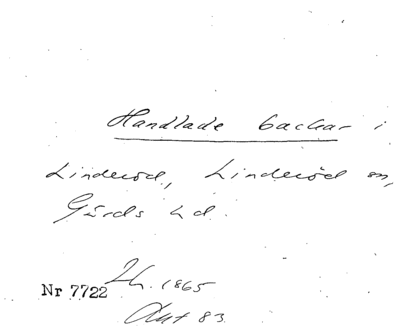 Handlade backar i
Linderöd, Linderöd sn,
Gärds hd.
Nr 7722
1865
83